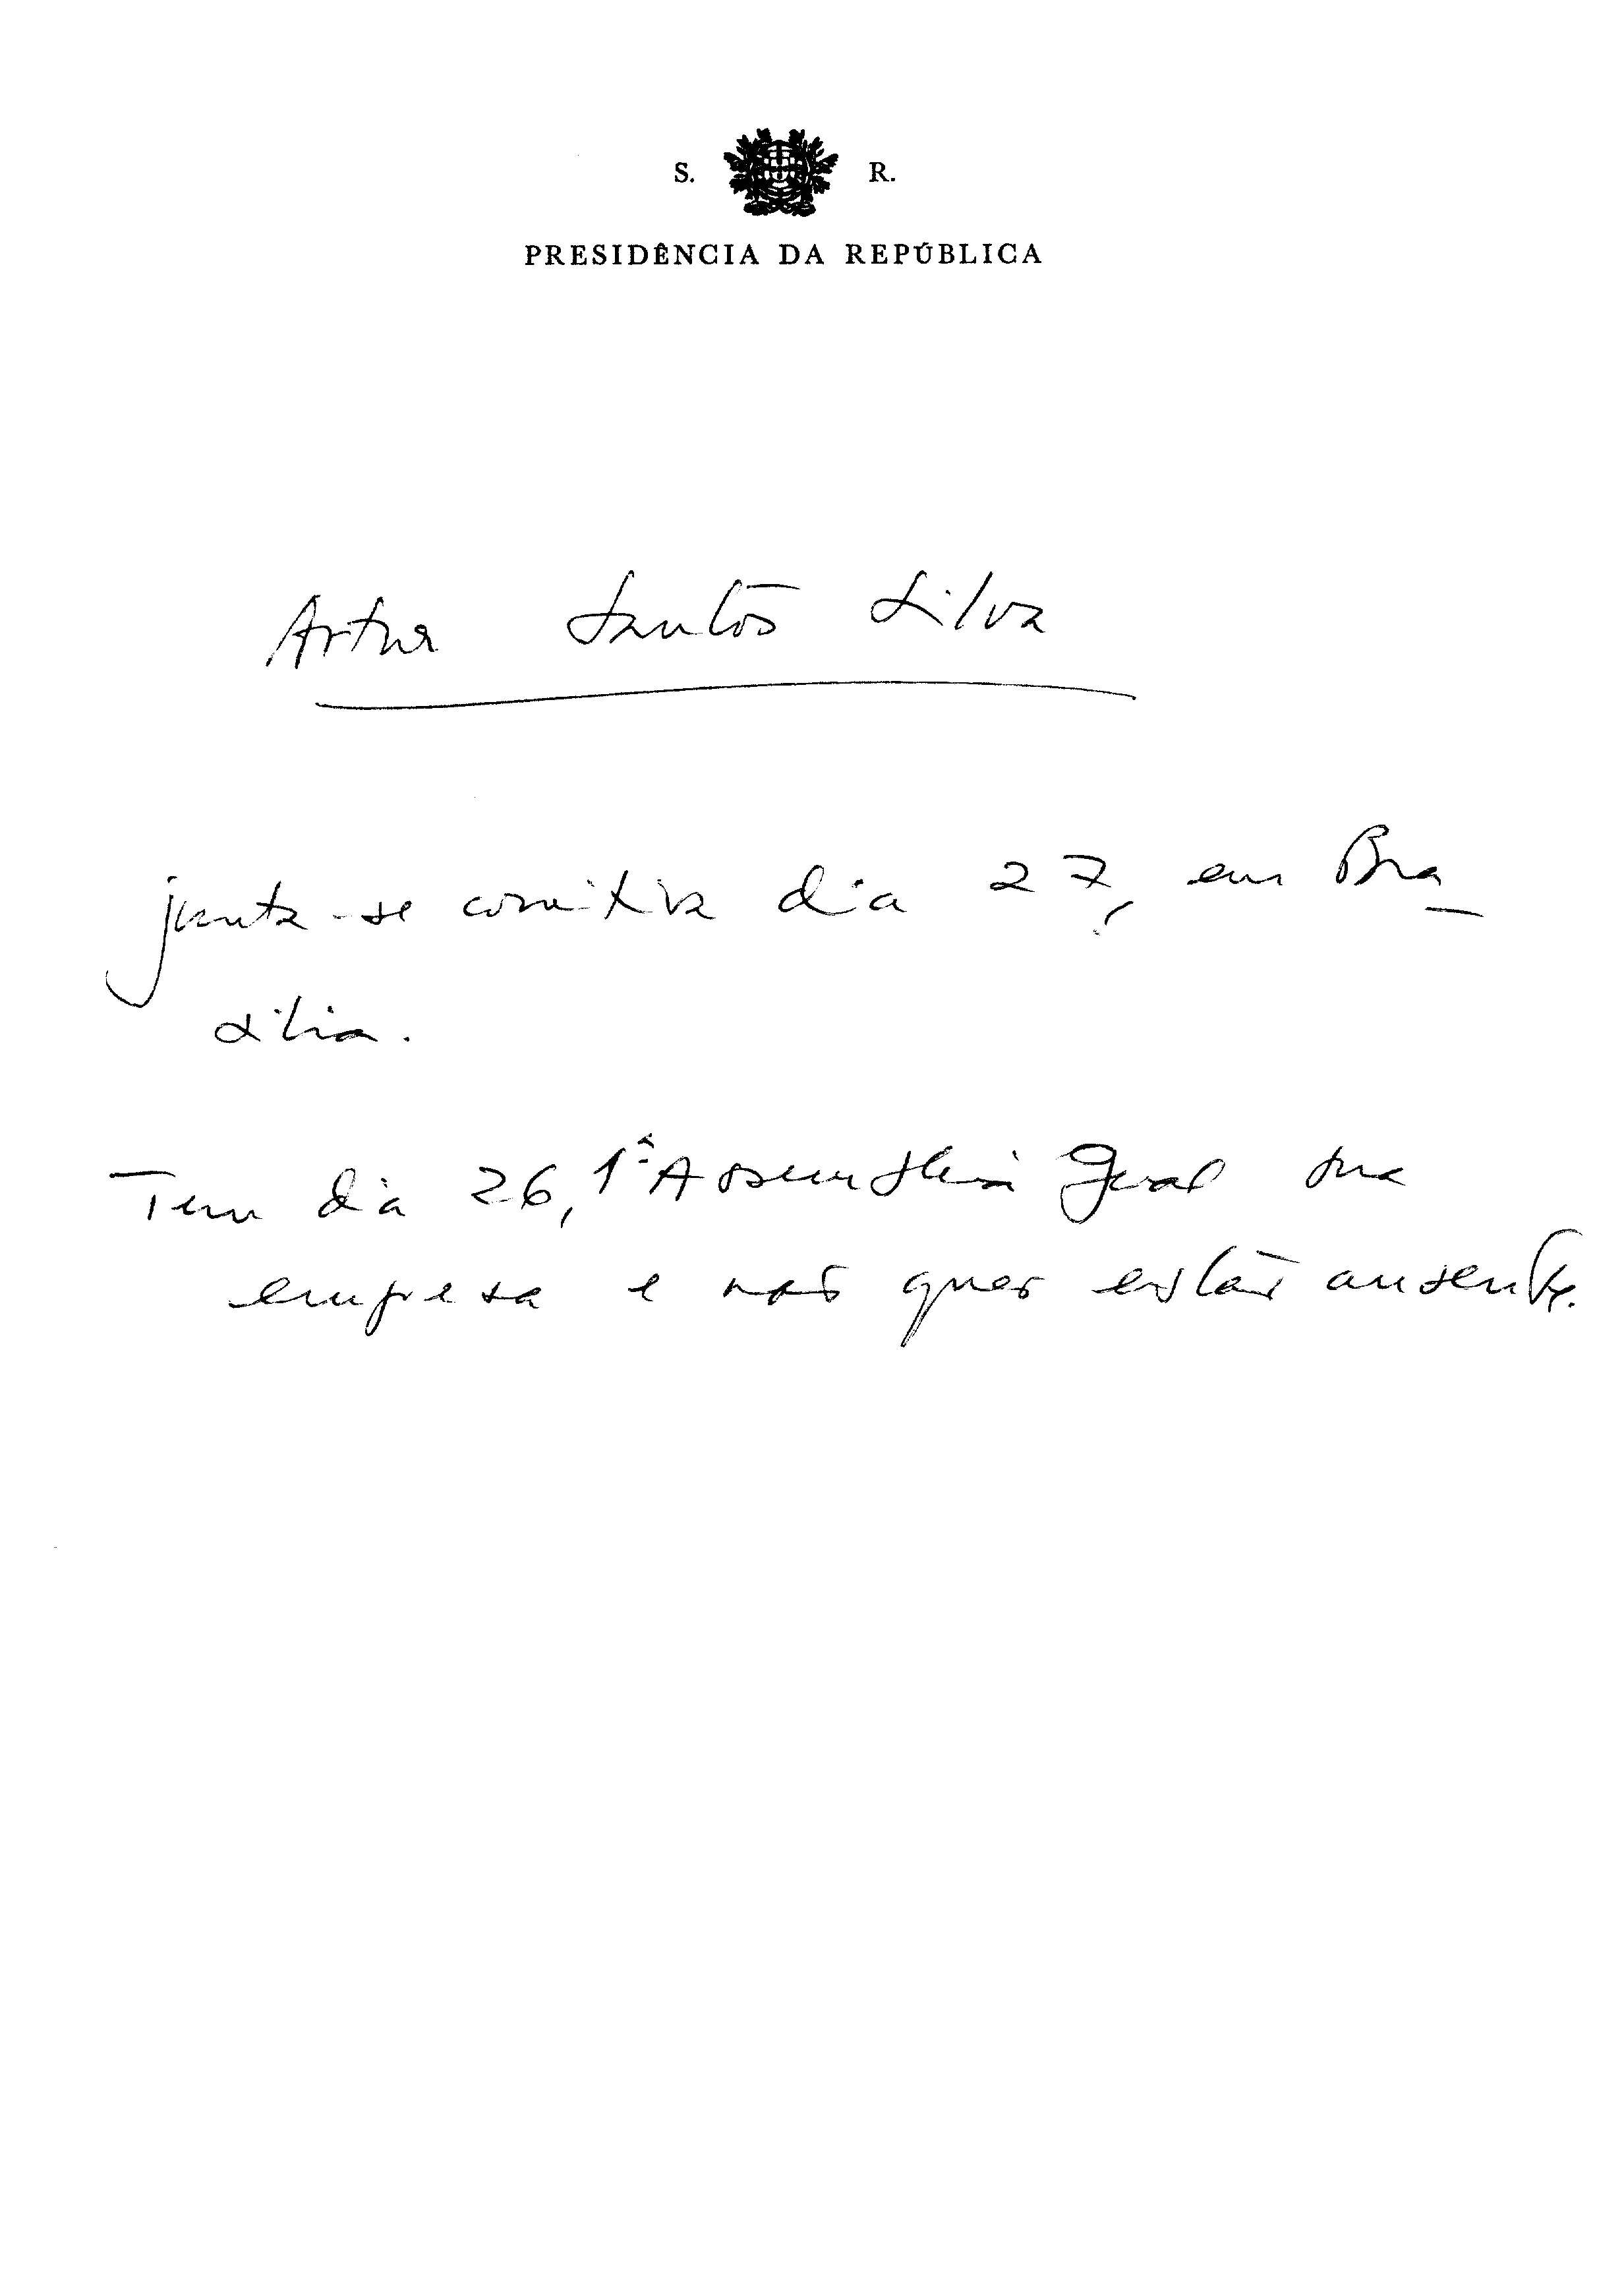 S. R.
PRESIDÊNCIA DA REPÚBLICA
Artur Santos Silva
junta-se comitiva dia 27, em Bra_
silia.
Tem dia 26, 1ª Assembleia Geral sua
empresa e não quer estar ausente.